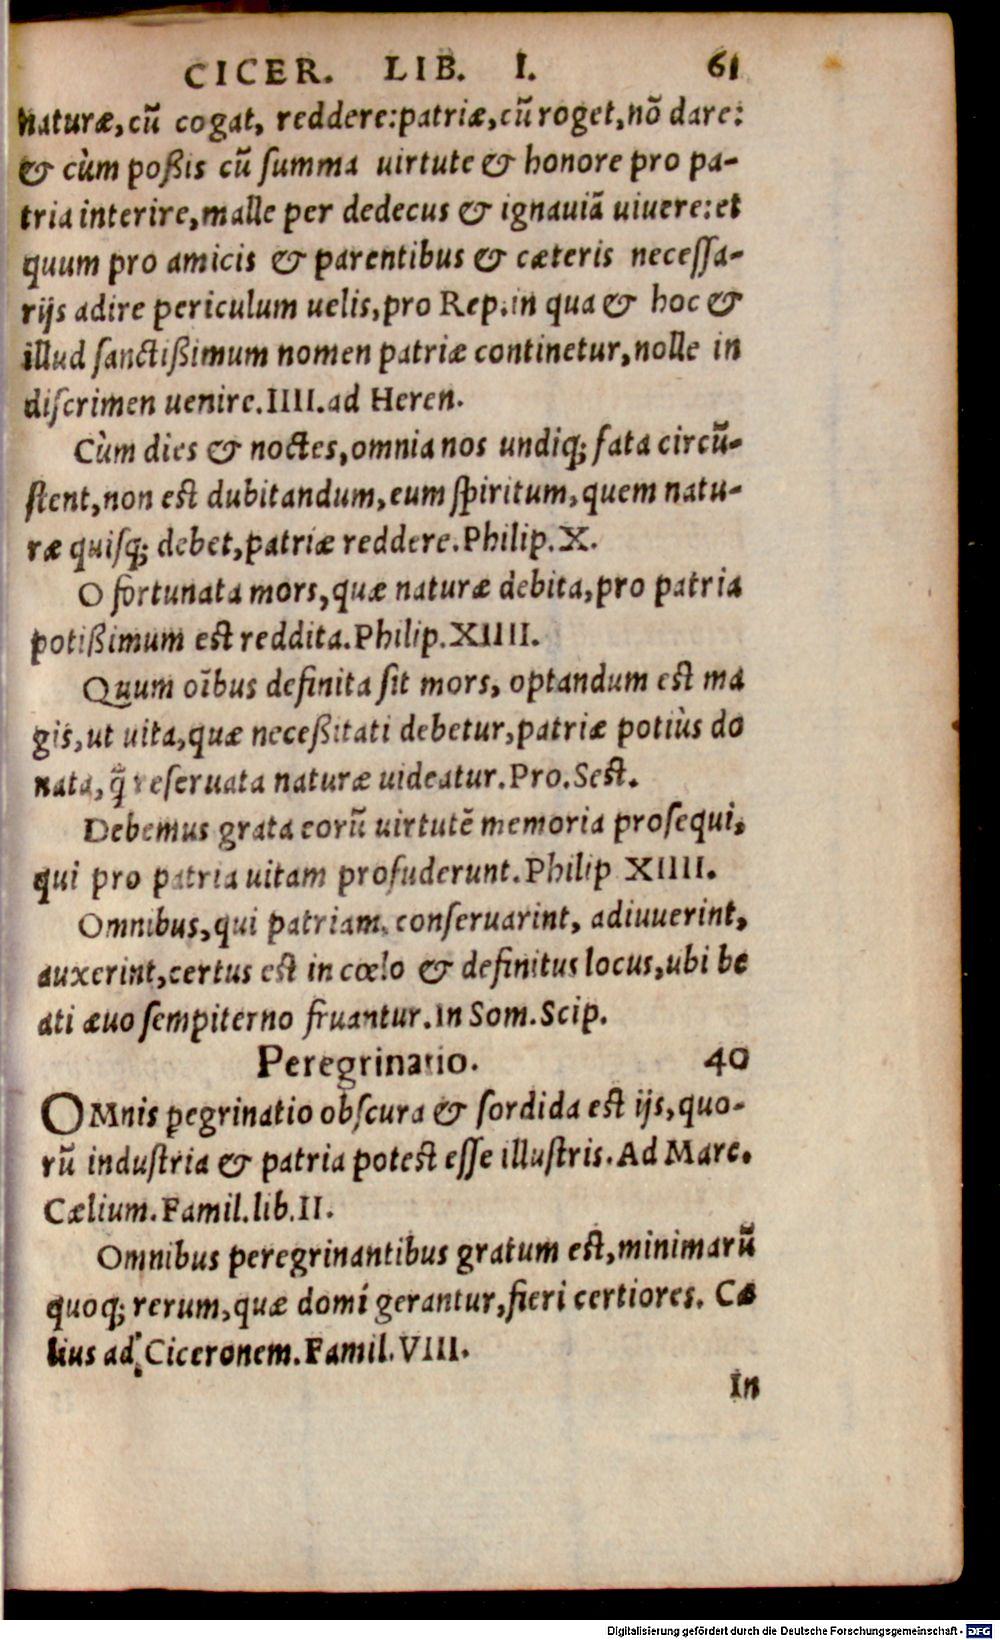 CICER. LIB. I. 61
naturæ, cū cogat, reddere: patriæ, cū roget, nō dare:
& cùm poßis cū ſumma uirtute & honore pro pa-
tria interire, malle per dedecus & ignauiā uiuere: et
quum pro amicis & parentibus & cæteris neceſſa-
rijs adire periculum uelis, pro Rep. in qua & hoc &
illud ſanctißimum nomen patriæ continetur, nolle in
diſcrimen uenire. IIII. ad Heren.
Cùm dies & noctes, omnia nos undiq; fata circū-
ſtent, non est dubitandum, eum ſpiritum, quem natu-
ræ quiſq; debet, patriæ reddere. Philip. X.
O fortunata mors, quæ naturæ debita, pro patria
potißimum est reddita. Philip. XIIII.
Quum oībus definita ſit mors, optandum est ma
gis, ut uita, quæ neceßitati debetur, patriæ potiùs do
nata, q̃ reſeruata naturæ uideatur. Pro. Sest.
Debemus grata eorū uirtutē memoria proſequi,
qui pro patria uitam profuderunt. Philip XIIII.
Omnibus, qui patriam, conſeruarint, adiuuerint,
auxerint, certus est in cœlo & definitus locus, ubi be
ati æuo ſempiterno fruantur. in Som. Scip.
Peregrinatio. 40
OMnis ꝑegrinatio obſcura & ſordida est ijs, quo-
rū induſtria & patria potest eſſe illuſtris. Ad Marc.
Cælium. Famil. lib. II.
Omnibus peregrinantibus gratum est, minimarū
quoq; rerum, quæ domi gerantur, fieri certiores. Cæ
lius ad Ciceronem. Famil. VIII.
In
Digitalisierung gefördert durch die Deutsche Forschungsgemeinschaft - DFG